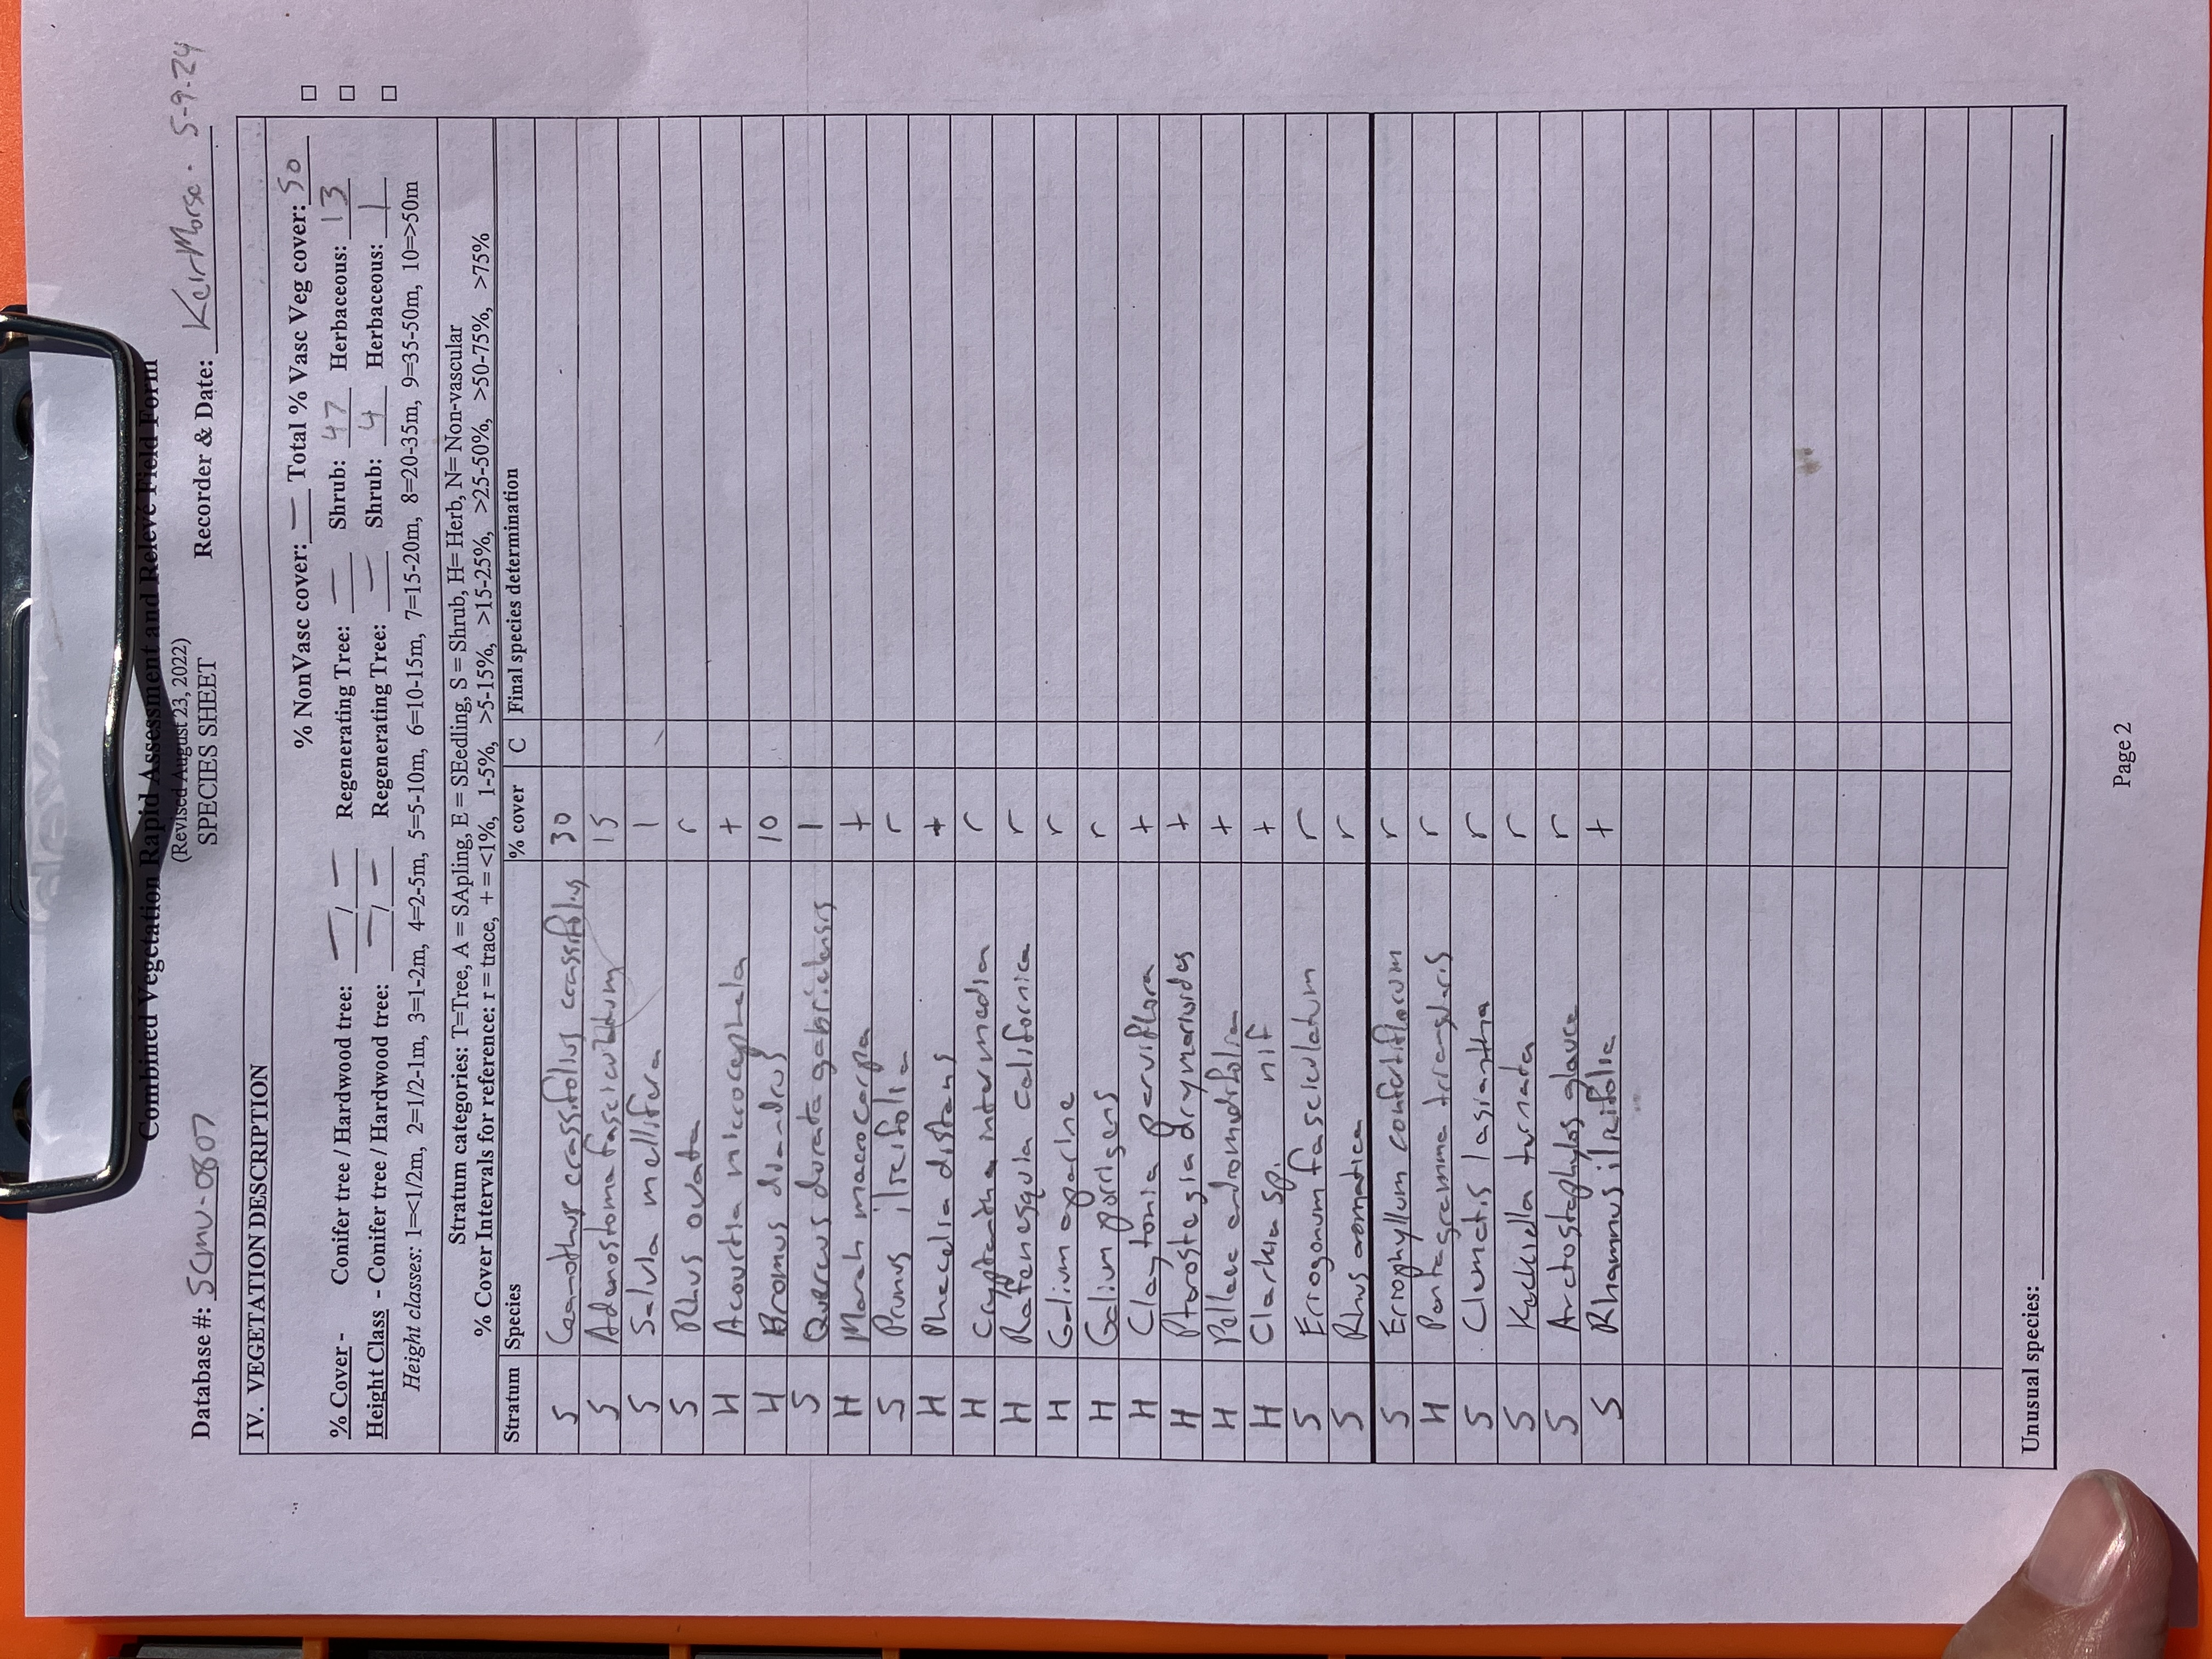 Combined Vegetation Rapid Assessment and Relevé Field Form
(Revised August 23, 2022)
SPECIES SHEET
Database #: SCMV-0807 Recorder & Date: Keir Morse · 5-9-24
IV. VEGETATION DESCRIPTION
% NonVasc cover: — Total % Vasc Veg cover: 50
% Cover - Conifer tree / Hardwood tree: — / — Regenerating Tree: — Shrub: 47 Herbaceous: 13
Height Class - Conifer tree / Hardwood tree: — / — Regenerating Tree: — Shrub: 4 Herbaceous: 1
Height classes: 1=<1/2m, 2=1/2-1m, 3=1-2m, 4=2-5m, 5=5-10m, 6=10-15m, 7=15-20m, 8=20-35m, 9=35-50m, 10=>50m
Stratum categories: T=Tree, A = SApling, E = SEedling, S = Shrub, H= Herb, N= Non-vascular
% Cover Intervals for reference: r = trace, + = <1%, 1-5%, >5-15%, >15-25%, >25-50%, >50-75%, >75%
Stratum Species % cover C Final species determination
S Ceanothus crassifolius crassifolius 30
S Adenostoma fasciculatum 15
S Salvia mellifera 1
S Rhus ovata r
H Acourtia microcephala +
H Bromus diandrus 10
S Quercus durata gabrielensis 1
H Marah macrocarpa +
S Prunus ilicifolia r
H Phacelia distans +
H Cryptantha intermedia r
H Rafinesquia californica r
H Galium aparine r
H Galium porrigens r
H Claytonia parviflora +
H Pterostegia drymarioides +
H Pellaea andromedifolia +
H Clarkia sp. nif +
S Eriogonum fasciculatum r
S Rhus aromatica r
S Eriophyllum confertiflorum r
H Pentagramma triangularis r
S Clematis lasiantha r
S Keckiella ternata r
S Arctostaphylos glauca r
S Rhamnus ilicifolia +
Unusual species:
Page 2